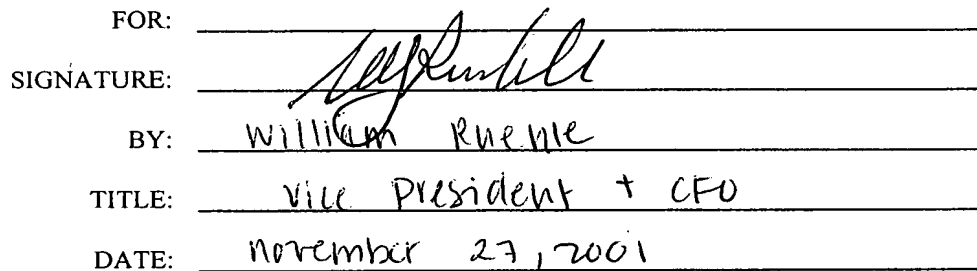 FOR:
SIGNATURE:
BY: William Ruehle
TITLE: Vice President + CFO
DATE: November 27, 2001